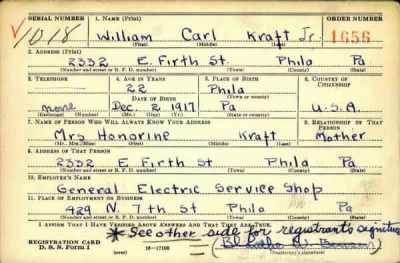 SERIAL NUMBER 1. NAME (Print) ORDER NUMBER
1018 William Carl Kraft Jr. 1656
(First) (Middle) (Last)
2. ADDRESS (Print)
2332 E. Firth St. Phila Pa
(Number and street or R. F. D. number) (Town) (County) (State)
3. TELEPHONE 4. AGE IN YEARS 5. PLACE OF BIRTH 6. COUNTRY OF CITIZENSHIP
22 Phila
DATE OF BIRTH (Town or county)
none Dec. 2, 1917 Pa U.S.A
(Exchange) (Number) (Mo.) (Day) (Yr.) (State or country)
7. NAME OF PERSON WHO WILL ALWAYS KNOW YOUR ADDRESS 8. RELATIONSHIP OF THAT PERSON
Mrs Honorine Kraft Mother
(Mr., Mrs., Miss) (First) (Middle) (Last)
9. ADDRESS OF THAT PERSON
2332 E Firth St Phila Pa
(Number and street or R. F. D. number) (Town) (County) (State)
10. EMPLOYER'S NAME
General Electric Service Shop
11. PLACE OF EMPLOYMENT OR BUSINESS
429 N. 7th St Phila Pa
(Number and street or R. F. D. number) (Town) (County) (State)
I AFFIRM THAT I HAVE VERIFIED ABOVE ANSWERS AND THAT THEY ARE TRUE.
* See other side for registrants signature
REGISTRATION CARD
D. S. S. Form 1 (over) 16—17105 (Registrant's signature)